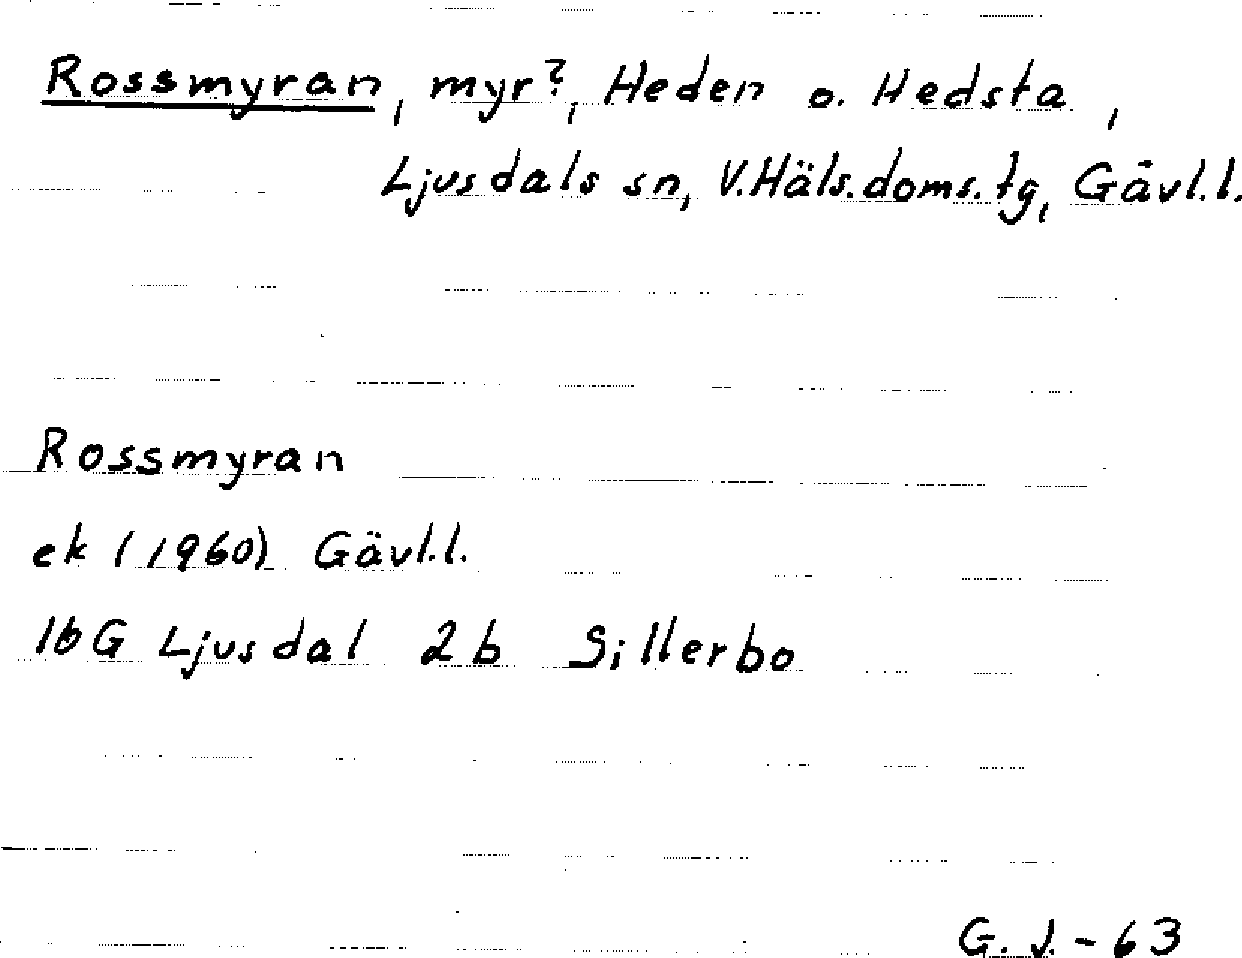 Rossmyran, myr?, Heden o. Hedsta,
Ljusdals sn, V.Häls.doms.tg, Gävl.l.
Rossmyran
ek (1960) Gävl.l.
16G Ljusdal 2b Sillerbo
G.J.-63